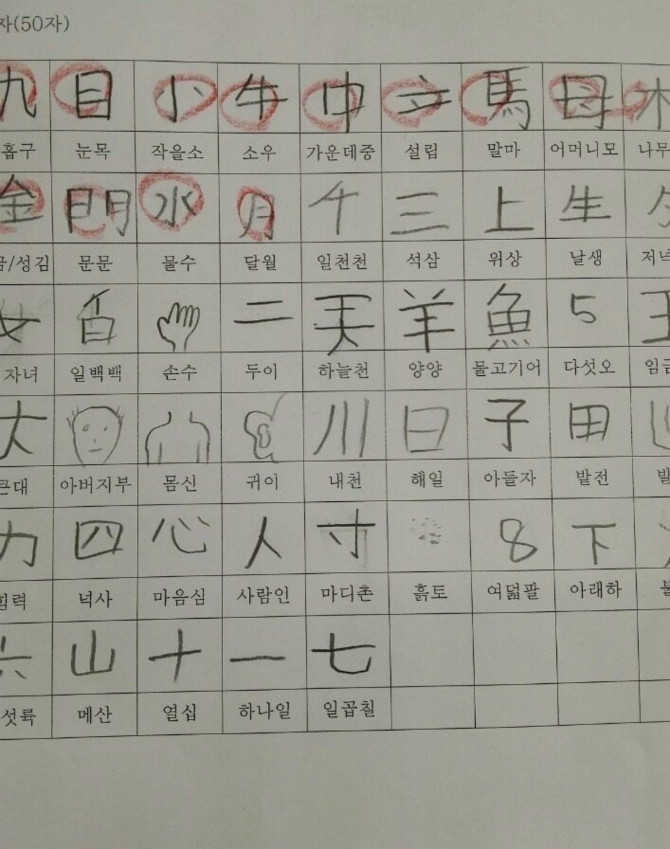 자(50자)
九 目 小 牛 中 立 馬 母 木
홉구 눈목 작을소 소우 가운데중 설립 말마 어머니모 나무
金 門 水 月 千 三 上 生 夕
금/성김 문문 물수 달월 일천천 석삼 위상 날생 저녁
女 百 二 天 羊 魚 5 王
자녀 일백백 손수 두이 하늘천 양양 물고기어 다섯오 임금
大 川 日 子 田
큰대 아버지부 몸신 귀이 내천 해일 아들자 밭전 발
力 四 心 人 寸 8 下
힘력 넉사 마음심 사람인 마디촌 흙토 여덟팔 아래하
六 山 十 一 七
섯륙 메산 열십 하나일 일곱칠